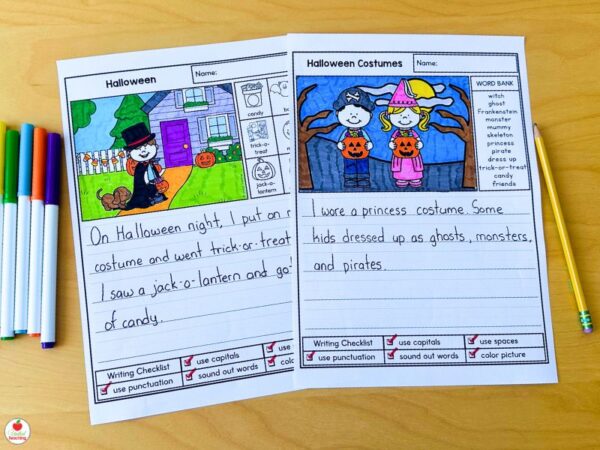 Halloween
Name:
candy
trick-o-
treat
jack-o-
lantern
On Halloween night, I put on
costume and went trick-or-treat
I saw a jack-o-lantern and
of candy.
Writing Checklist
use capitals
use punctuation
sound out words
Halloween Costumes
Name:
WORD BANK
witch
ghost
Frankenstein
monster
mummy
skeleton
princess
pirate
dress up
trick-or-treat
candy
friends
I wore a princess costume. Some
kids dressed up as ghosts, monsters,
and pirates.
Writing Checklist
use capitals
use spaces
use punctuation
sound out words
color picture